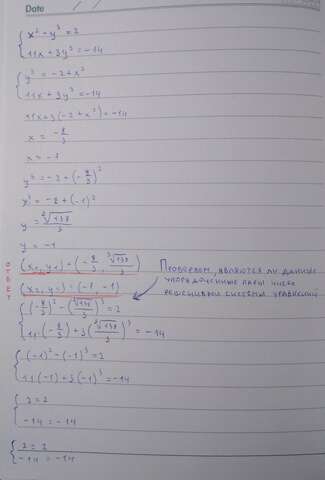 Date
{ x² - y³ = 2
11x + 3y³ = -14
{ y³ = -2 + x²
11x + 3y³ = -14
11x + 3(-2 + x²) = -14
x = -8/3
x = -1
y³ = -2 + (-8/3)²
y³ = -2 + (-1)²
y = ∛138/3
y = -1
(x₁, y₁) = (-8/3, ∛138/3)
(x₂, y₂) = (-1, -1)
ОТВЕТ
Проверяем, являются ли данные
упорядоченные пары чисел
решениями системы уравнений
{ (-8/3)² - (∛138/3)³ = 2
11·(-8/3) + 3(∛138/3)³ = -14
{ (-1)² - (-1)³ = 2
11·(-1) + 3(-1)³ = -14
{ 2 = 2
-14 = -14
{ 2 = 2
-14 = -14